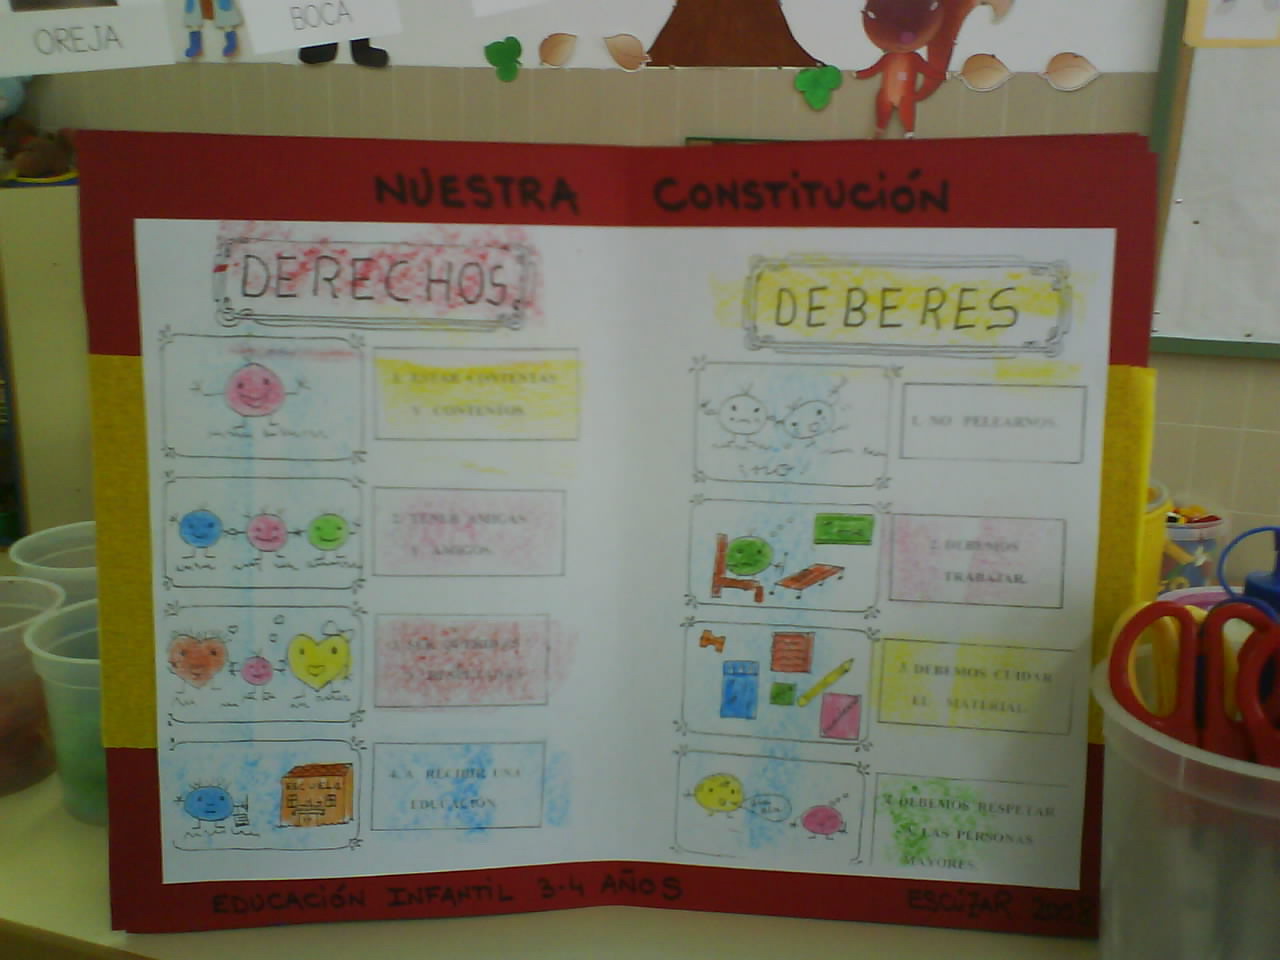 OREJA
BOCA
NUESTRA CONSTITUCIÓN
DERECHOS
1. ESTAR CONTENTAS
Y CONTENTOS.
2. TENER AMIGAS
Y AMIGOS.
3. SER QUERIDOS
Y RESPETADOS
4. A RECIBIR UNA
EDUCACIÓN.
ESCUELA
DEBERES
¡NO!
1. NO PELEARNOS.
2. DEBEMOS
TRABAJAR.
3. DEBEMOS CUIDAR
EL MATERIAL.
4. DEBEMOS RESPETAR
A LAS PERSONAS
MAYORES.
EDUCACIÓN INFANTIL 3-4 AÑOS
ESCÚZAR 2008